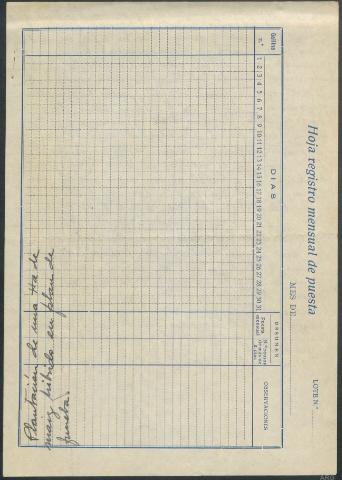 Hoja registro mensual de puesta
MES DE
LOTE N.º
Gallina
n.º
DIAS
1 2 3 4 5 6 7 8 9 10 11 12 13 14 15 16 17 18 19 20 21 22 23 24 25 26 27 28 29 30 31
RESUMEN
Puesta
mensual
OBSERVACIONES
Plantación de una Ha de
maiz hibrido en plan de
prueba.